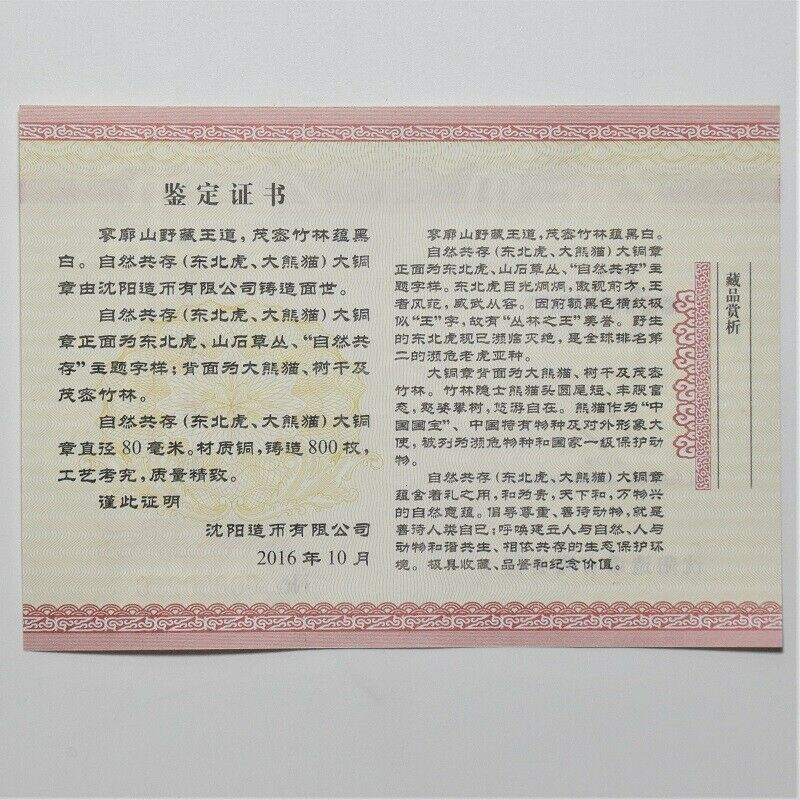 鉴定证书
寥廓山野藏王道，茂密竹林蕴黑
白。自然共存（东北虎、大熊猫）大铜
章由沈阳造币有限公司铸造面世。
自然共存（东北虎、大熊猫）大铜
章正面为东北虎、山石草丛、“自然共
存”主题字样；背面为大熊猫、树干及
茂密竹林。
自然共存（东北虎、大熊猫）大铜
章直径80毫米。材质铜，铸造800枚，
工艺考究，质量精致。
谨此证明
沈阳造币有限公司
2016年10月
寥廓山野藏王道，茂密竹林蕴黑白。
自然共存（东北虎、大熊猫）大铜章
正面为东北虎、山石草丛、“自然共存”主
题字样。东北虎目光炯炯，傲视前方，王
者风范，威武从容。因前额黑色横纹极
似“王”字，故有“丛林之王”美誉。野生
的东北虎现已濒临灭绝，是全球排名第
二的濒危老虎亚种。
大铜章背面为大熊猫、树干及茂密
竹林。竹林隐士熊猫头圆尾短、丰腴富
态，憨姿攀树，悠游自在。熊猫作为“中
国国宝”、中国特有物种及对外形象大
使，被列为濒危物种和国家一级保护动
物。
自然共存（东北虎、大熊猫）大铜章
蕴含着礼之用，和为贵，天下和，万物兴
的自然意蕴。倡导尊重、善待动物，就是
善待人类自己；呼唤建立人与自然、人与
动物和谐共生、相依共存的生态保护环
境。极具收藏、品鉴和纪念价值。
藏品赏析